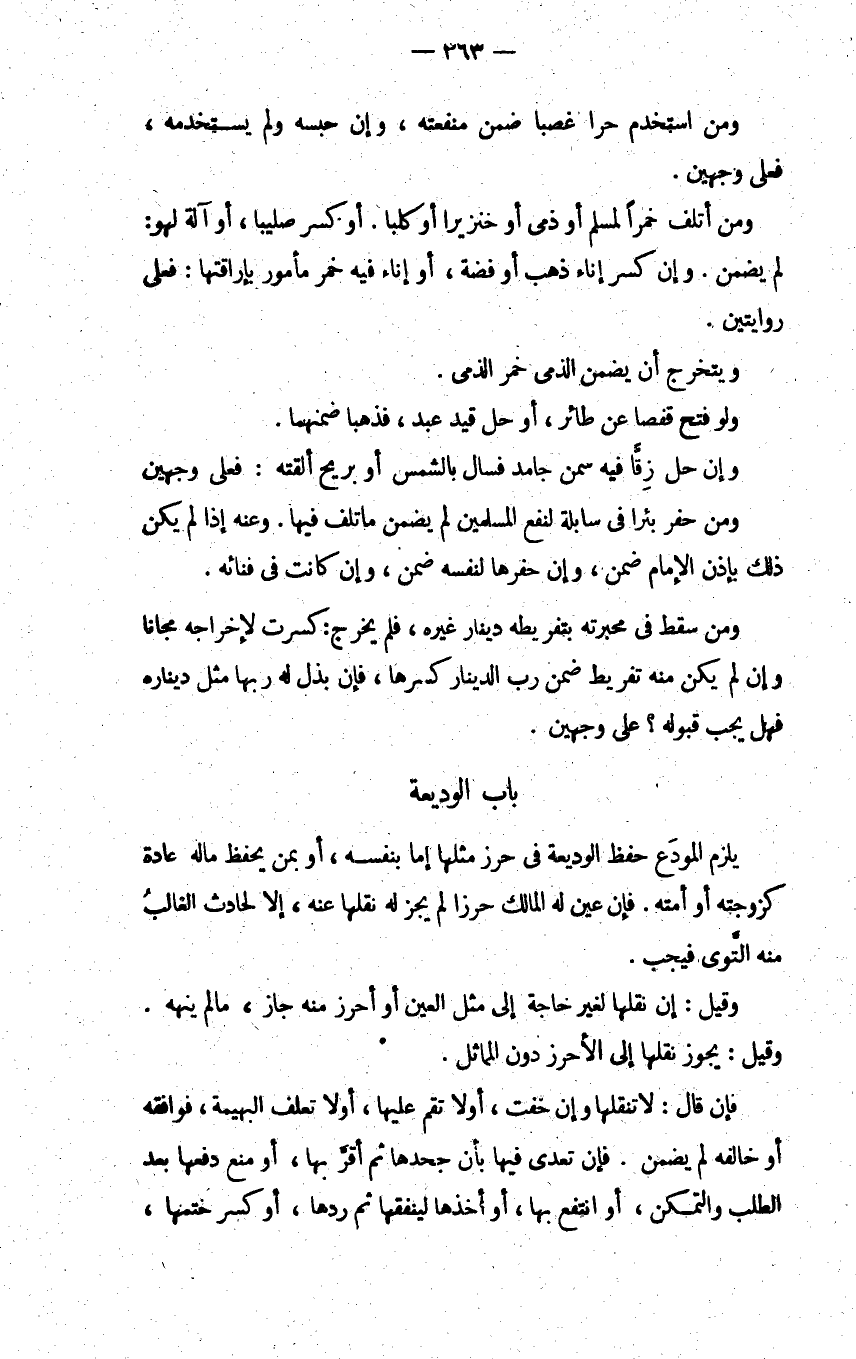 — ٢٦٣ —
ومن استخدم حرا غصبا ضمن منفعته ، وإن حبسه ولم يستخدمه ،
فعلى وجهين .
ومن أتلف خمراً لمسلم أو ذمى أو خنزيرا أوكلبا . أوكسر صليبا ، أو آلة لهو:
لم يضمن . وإن كسر إناء ذهب أو فضة ، أو إناء فيه خمر مأمور بإراقتها : فعلى
روايتين .
ويتخرج أن يضمن الذمى خمر الذمى .
ولو فتح قفصا عن طائر ، أو حل قيد عبد ، فذهبا ضمنهما .
وإن حل زِقًّا فيه سمن جامد فسال بالشمس أو بريح ألقته : فعلى وجهين
ومن حفر بئرا فى سابلة لنفع المسلمين لم يضمن ماتلف فيها . وعنه إذا لم يكن
ذلك بإذن الإمام ضمن ، وإن حفرها لنفسه ضمن ، وإن كانت فى فنائه .
ومن سقط فى محبرته بتفريطه دينار غيره ، فلم يخرج:كسرت لإخراجه مجانا
وإن لم يكن منه تفريط ضمن رب الدينار كسرها ، فإن بذل له ربها مثل ديناره
فهل يجب قبوله ؟ على وجهين .
باب الوديعة
يلزم المودَع حفظ الوديعة فى حرز مثلها إما بنفسه ، أو بمن يحفظ ماله عادة
كزوجته أو أمته . فإن عين له المالك حرزا لم يجز له نقلها عنه ، إلا لحادث الغالبُ
منه التَّوى فيجب .
وقيل : إن نقلها لغير حاجة إلى مثل العين أو أحرز منه جاز ، مالم ينهه .
وقيل : يجوز نقلها إلى الأحرز دون المماثل .
فإن قال : لاتنقلها وإن خفت ، أولا تقم عليها ، أولا تعلف البهيمة ، فوافقه
أو خالفه لم يضمن . فإن تعدى فيها بأن جحدها ثم أقرَّ بها ، أو منع دفعها بعد
الطلب والتمكن ، أو انتفع بها ، أو أخذها لينفقها ثم ردها ، أوكسر ختمها ،